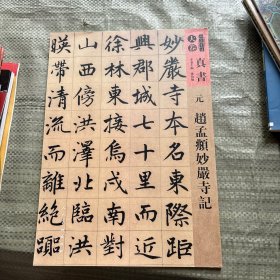 真書
元 趙孟頫妙嚴寺記
妙嚴寺本名東際距
興郡城七十里而近
徐林東接烏戍南對
山西傍洪澤北臨洪
暎帶清流而離絕囂